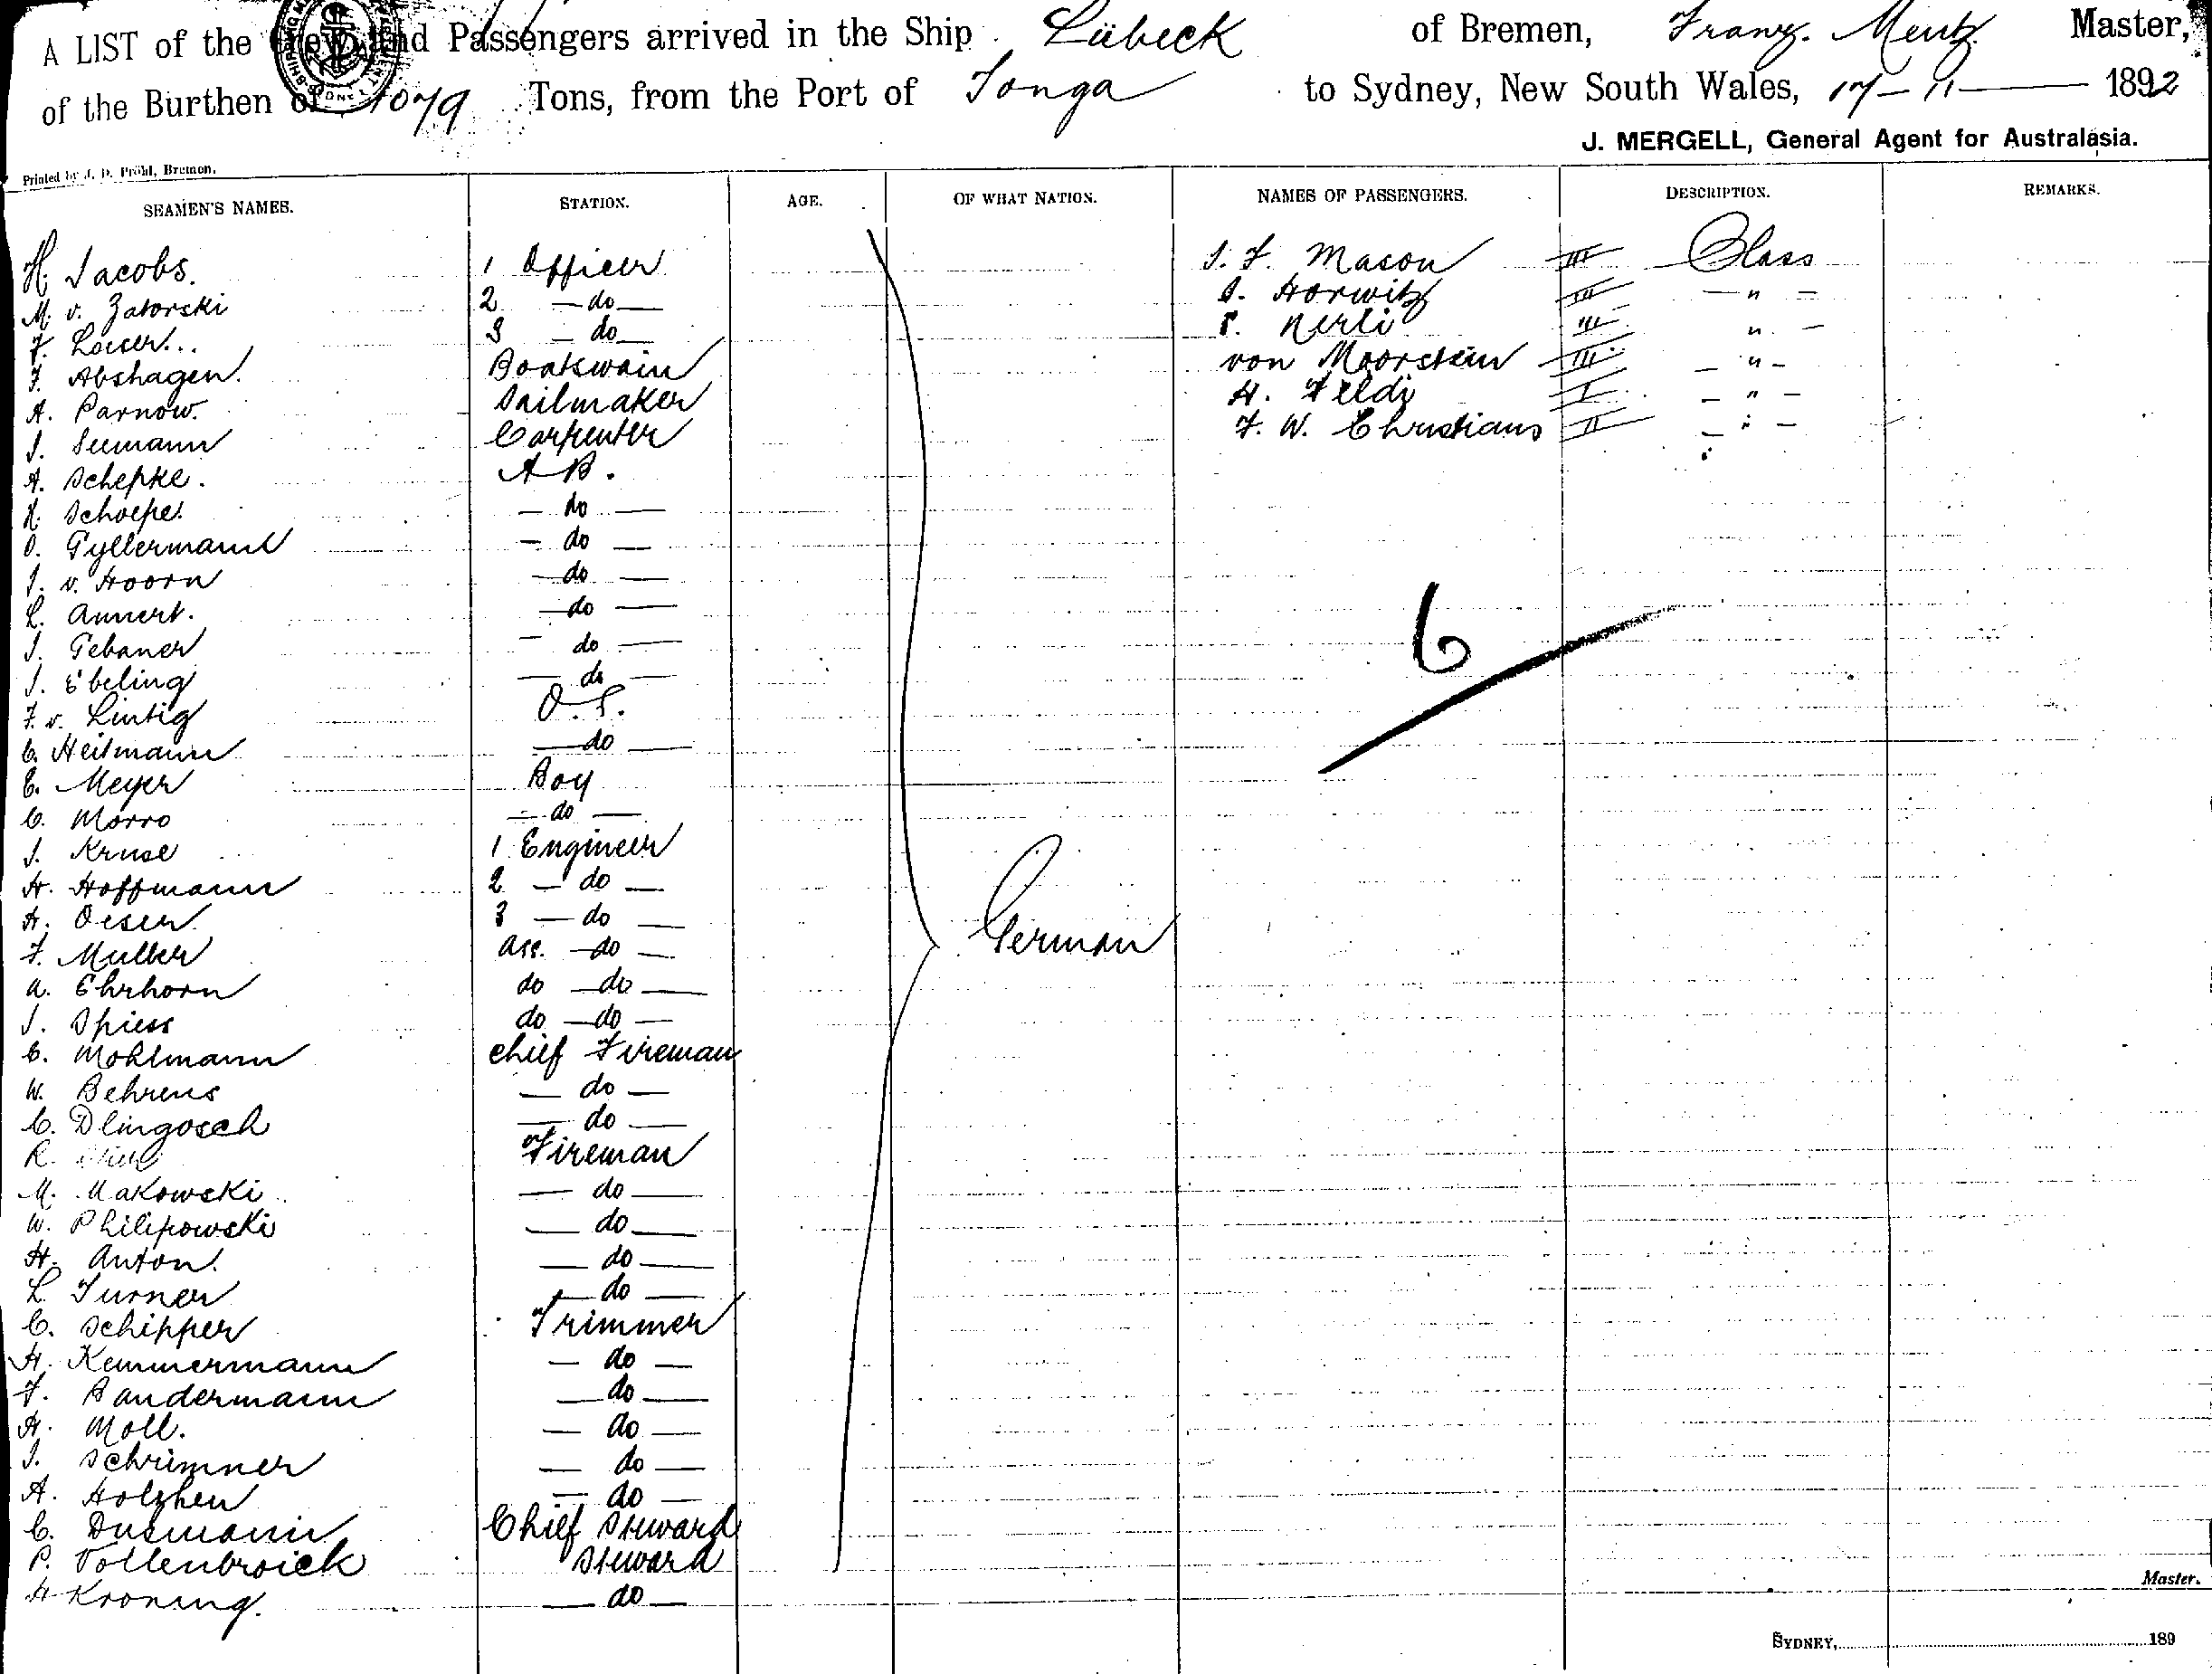 A LIST of the Crew and Passengers arrived in the Ship Lübeck of Bremen, Franz. Mentz Master,
of the Burthen of 1079 Tons, from the Port of Tonga to Sydney, New South Wales, 17-11- 1892
J. MERGELL, General Agent for Australasia.
Printed by J. D. Pröhl, Bremen.
SEAMEN'S NAMES. STATION. AGE. OF WHAT NATION. NAMES OF PASSENGERS. DESCRIPTION. REMARKS.
H. Jacobs. 1 Officer J. F. Mason III Class
M. v. Zatorski 2 - do - S. Horwitz III - " -
F. Loeser. 3 - do - P. Nerli III " -
F. Abshagen. Boatswain von Moorstein III - " -
A. Parnow. Sailmaker H. Feldz I - " -
J. Seemann Carpenter F. W. Christians II - " -
A. Schepke. A B.
H. Schoepe. - do -
O. Gyllermann - do -
J. v. Hoorn - do -
L. Annert. - do -
J. Gebauer - do -
J. Ebeling - do -
F. v. Lintig O. S.
C. Heitmann - do -
C. Meyer Boy
C. Morro - do -
6
J. Kruse 1 Engineer
H. Hoffmann 2 - do -
H. Oeser 3 - do -
German
F. Muller ass. - do -
A. Ehrhorn do - do -
J. Spiess do - do -
C. Mohlmann chief Fireman
W. Behrens - do -
C. Dlingosch - do -
R. Fireman
M. Makowski - do -
W. Philipowski - do -
H. Anton. - do -
L. Turner - do -
C. Schipper Trimmer
H. Kemmermann - do -
F. Bandermann - do -
H. Moll. - do -
J. Schrimner - do -
A. Holzhen - do -
C. Dusmann Chief Steward
P. Vollenbroick Steward
H Kroning. - do -
Master.
SYDNEY, 189